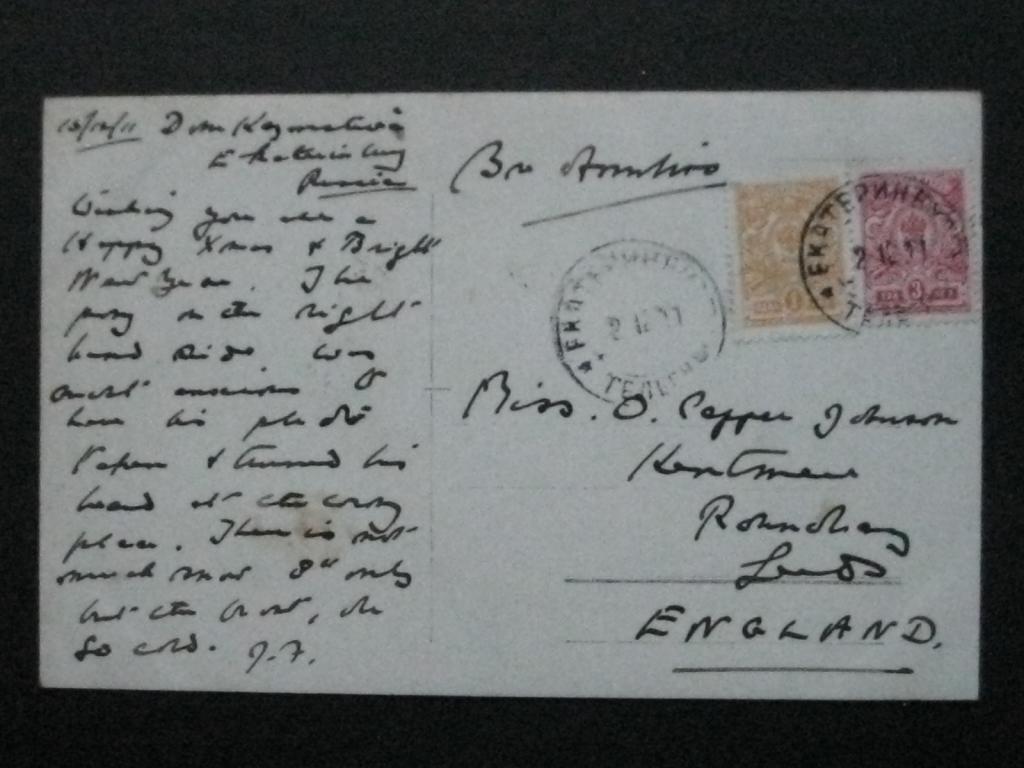 15/12/11 Dom
Ekaterinburg
Russia
Wishing you all a
Happy Xmas & Bright
New Year. The
pony on the right
hand side was
most anxious to
have his photo
taken & turned his
head at the wrong
place. There is not
much snow 8" only
but the frost, oh
So cold. J.F.
ЕКАТЕРИНБУРГ
2 12 11
ТЕЛЕГР
1
ЕКАТЕРИНБУРГ
2 12 11
ТЕЛ
3
Miss. O. Pepper Johnson
Kentmere
Roundhay
Leeds
ENGLAND.